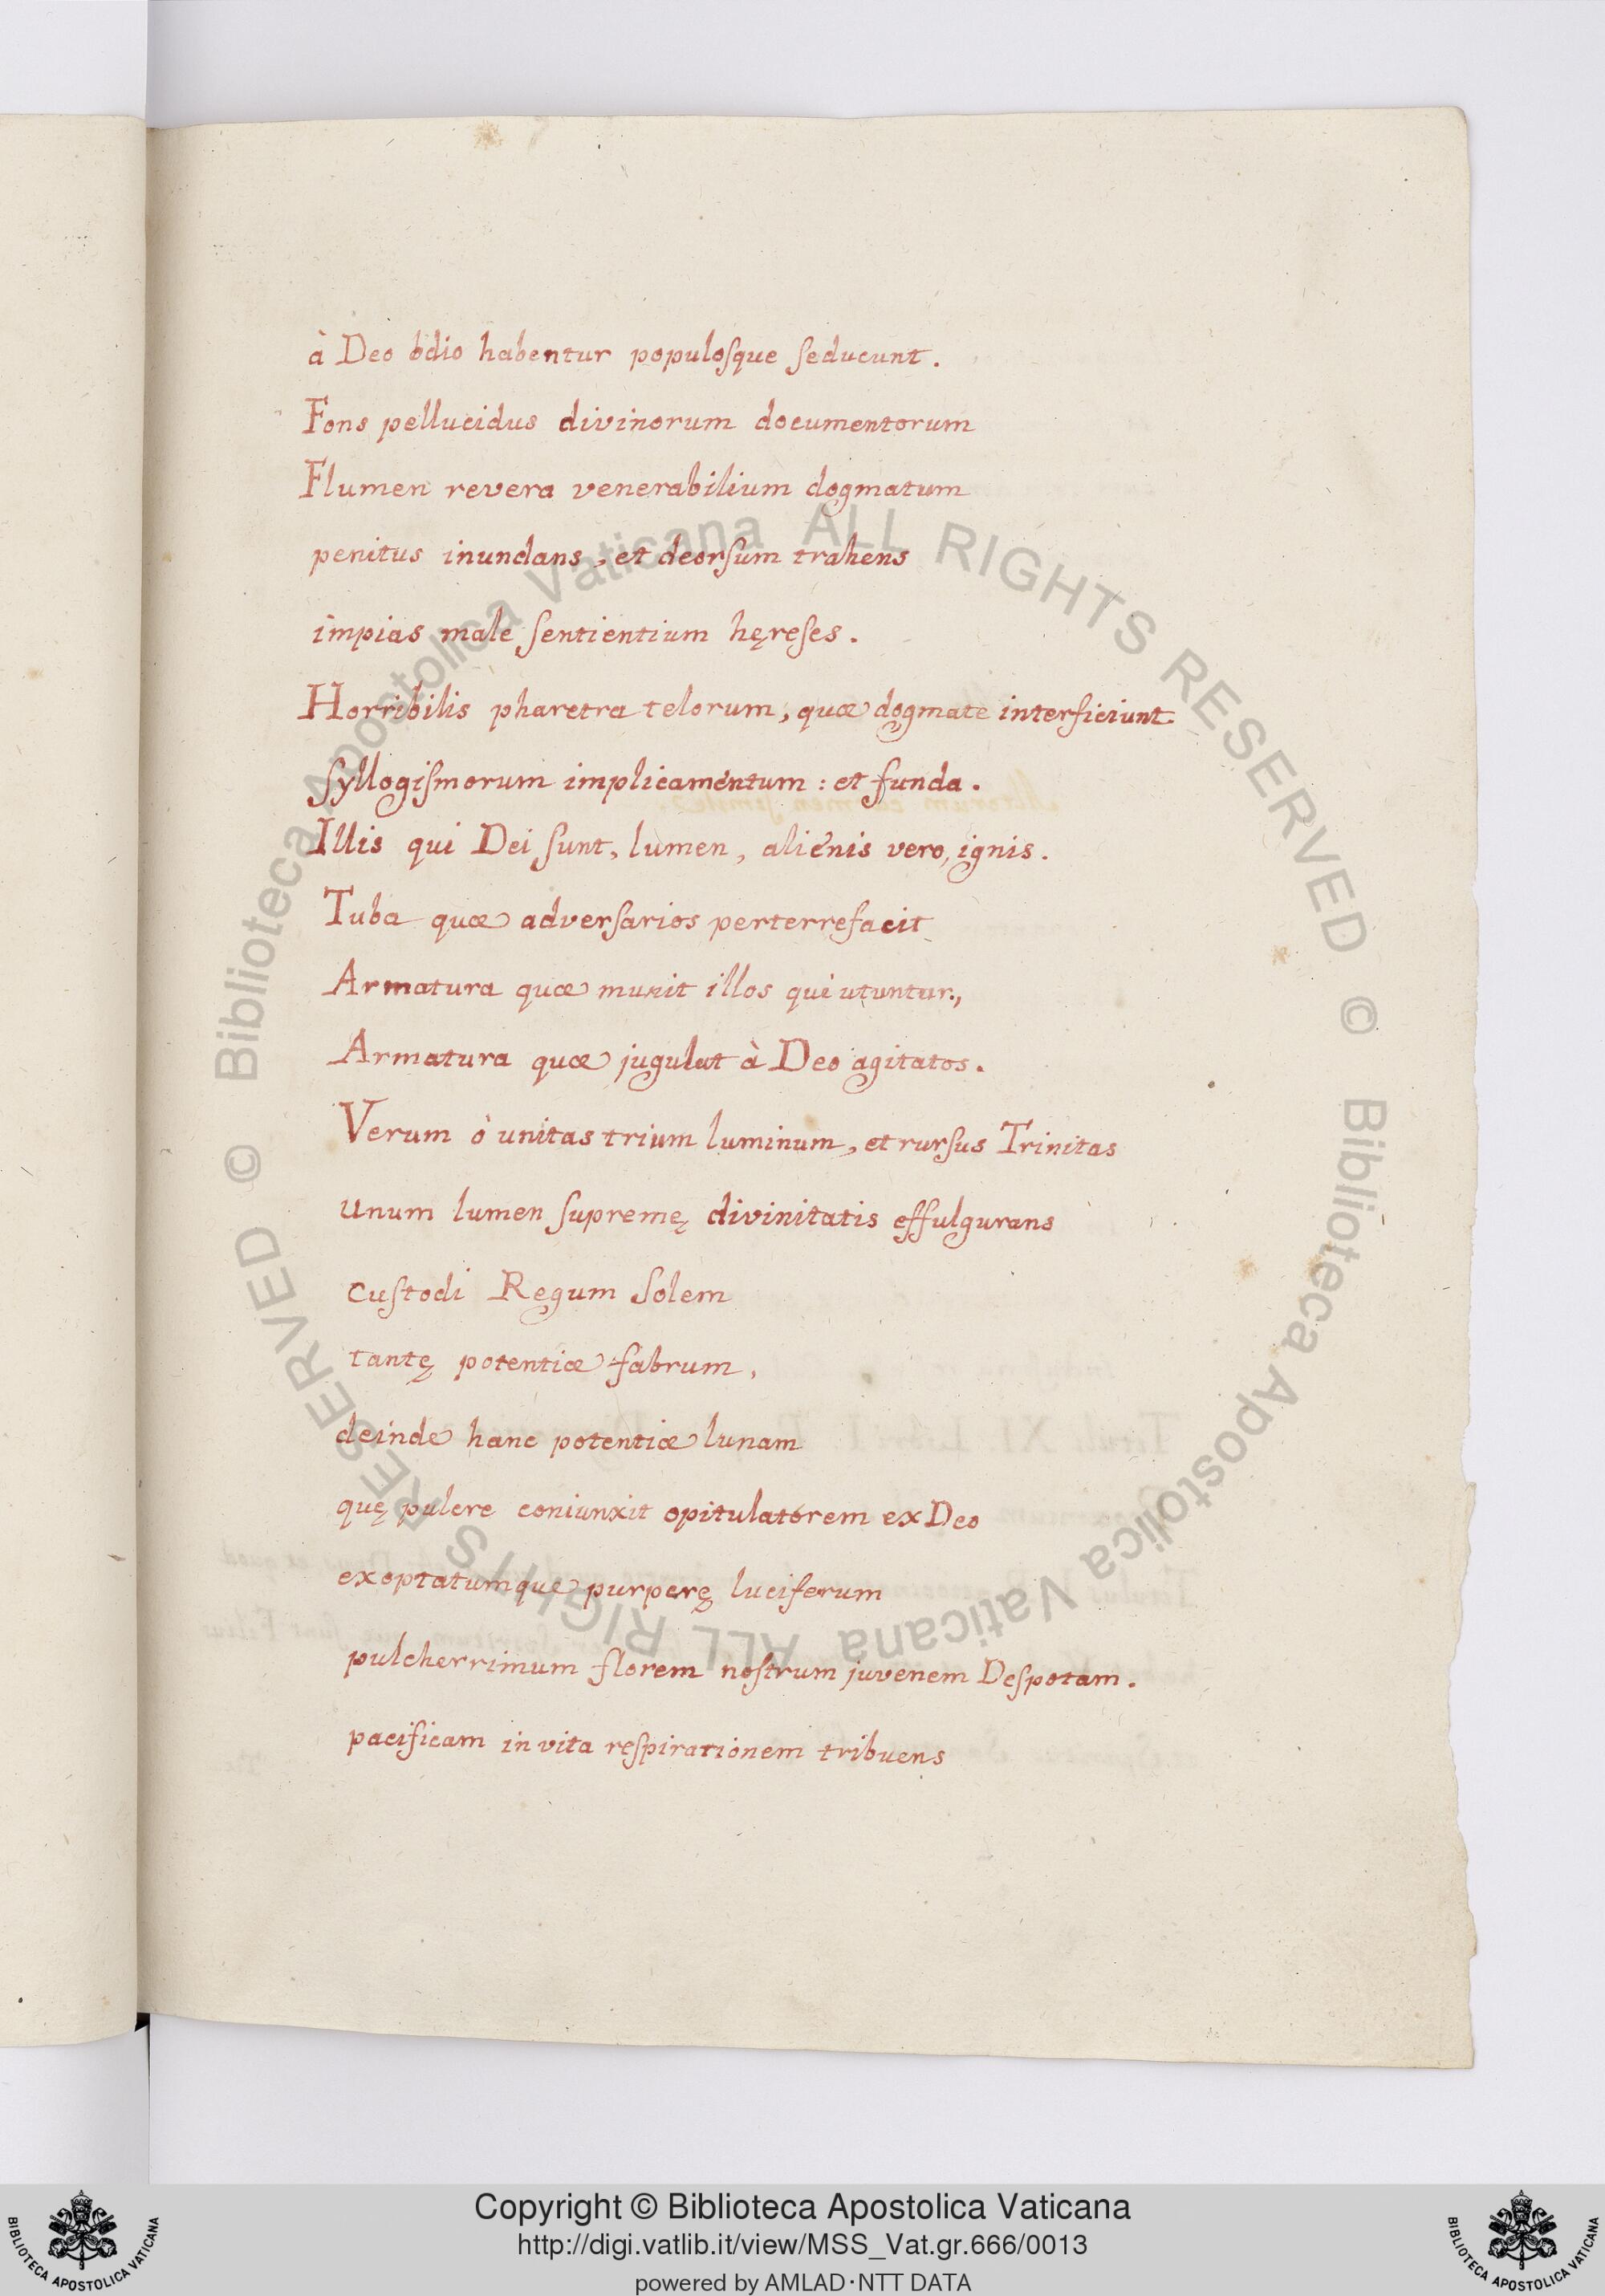 à Deo odio habentur populosque seducunt.
Fons pellucidus divinorum documentorum
Flumen revera venerabilium dogmatum
penitus inundans, et deorsum trahens
impias male sentientium hęreses.
Horribilis pharetra telorum, quæ dogmate interficiunt
syllogismorum implicamentum: et funda.
Illis qui Dei sunt, lumen, alienis vero, ignis.
Tuba quæ adversarios perterrefacit
Armatura quæ munit illos qui utuntur,
Armatura quæ jugulat à Deo agitatos.
Verum ò unitas trium luminum, et rursus Trinitas
unum lumen supremę divinitatis effulgurans
custodi Regum Solem
tantę potentiæ fabrum,
deinde hanc potentiæ lunam
quę pulcre coniunxit opitulatorem ex Deo
exoptatumque purperę luciferum
pulcherrimum florem nostrum juvenem Despotam.
pacificam in vita respirationem tribuens
© Biblioteca Apostolica Vaticana ALL RIGHTS RESERVED
© Biblioteca Apostolica Vaticana ALL RIGHTS RESERVED
Copyright © Biblioteca Apostolica Vaticana
http://digi.vatlib.it/view/MSS_Vat.gr.666/0013
powered by AMLAD·NTT DATA
BIBLIOTECA APOSTOLICA VATICANA
BIBLIOTECA APOSTOLICA VATICANA